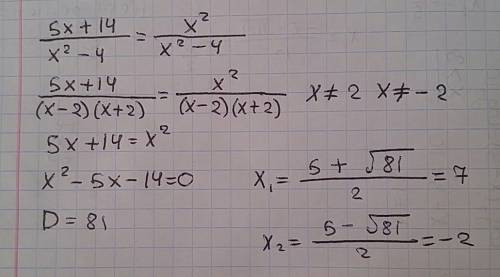 (5x+14)/(x²-4) = x²/(x²-4)
(5x+14)/((x-2)(x+2)) = x²/((x-2)(x+2)) x≠2 x≠-2
5x+14=x²
x²-5x-14=0
D=81
x₁=(5+√81)/2=7
x₂=(5-√81)/2=-2